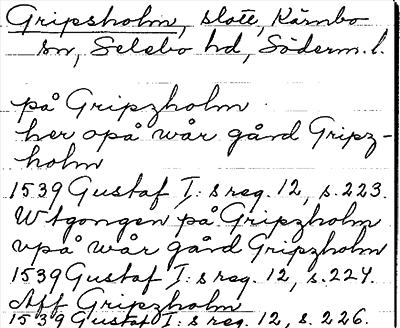 Gripsholm, slott, Kärnbo
sn, Selebo hd, Söderm. l.
på Gripzholm
her opå wår gård Gripz-
holm
1539 Gustaf I:s reg. 12, s. 223.
Wtgongen på Gripzholm
vpå wår gård Gripzholm
1539 Gustaf I:s reg. 12, s. 224.
Aff Gripzholm
1539 Gustaf I:s reg. 12, s. 226.